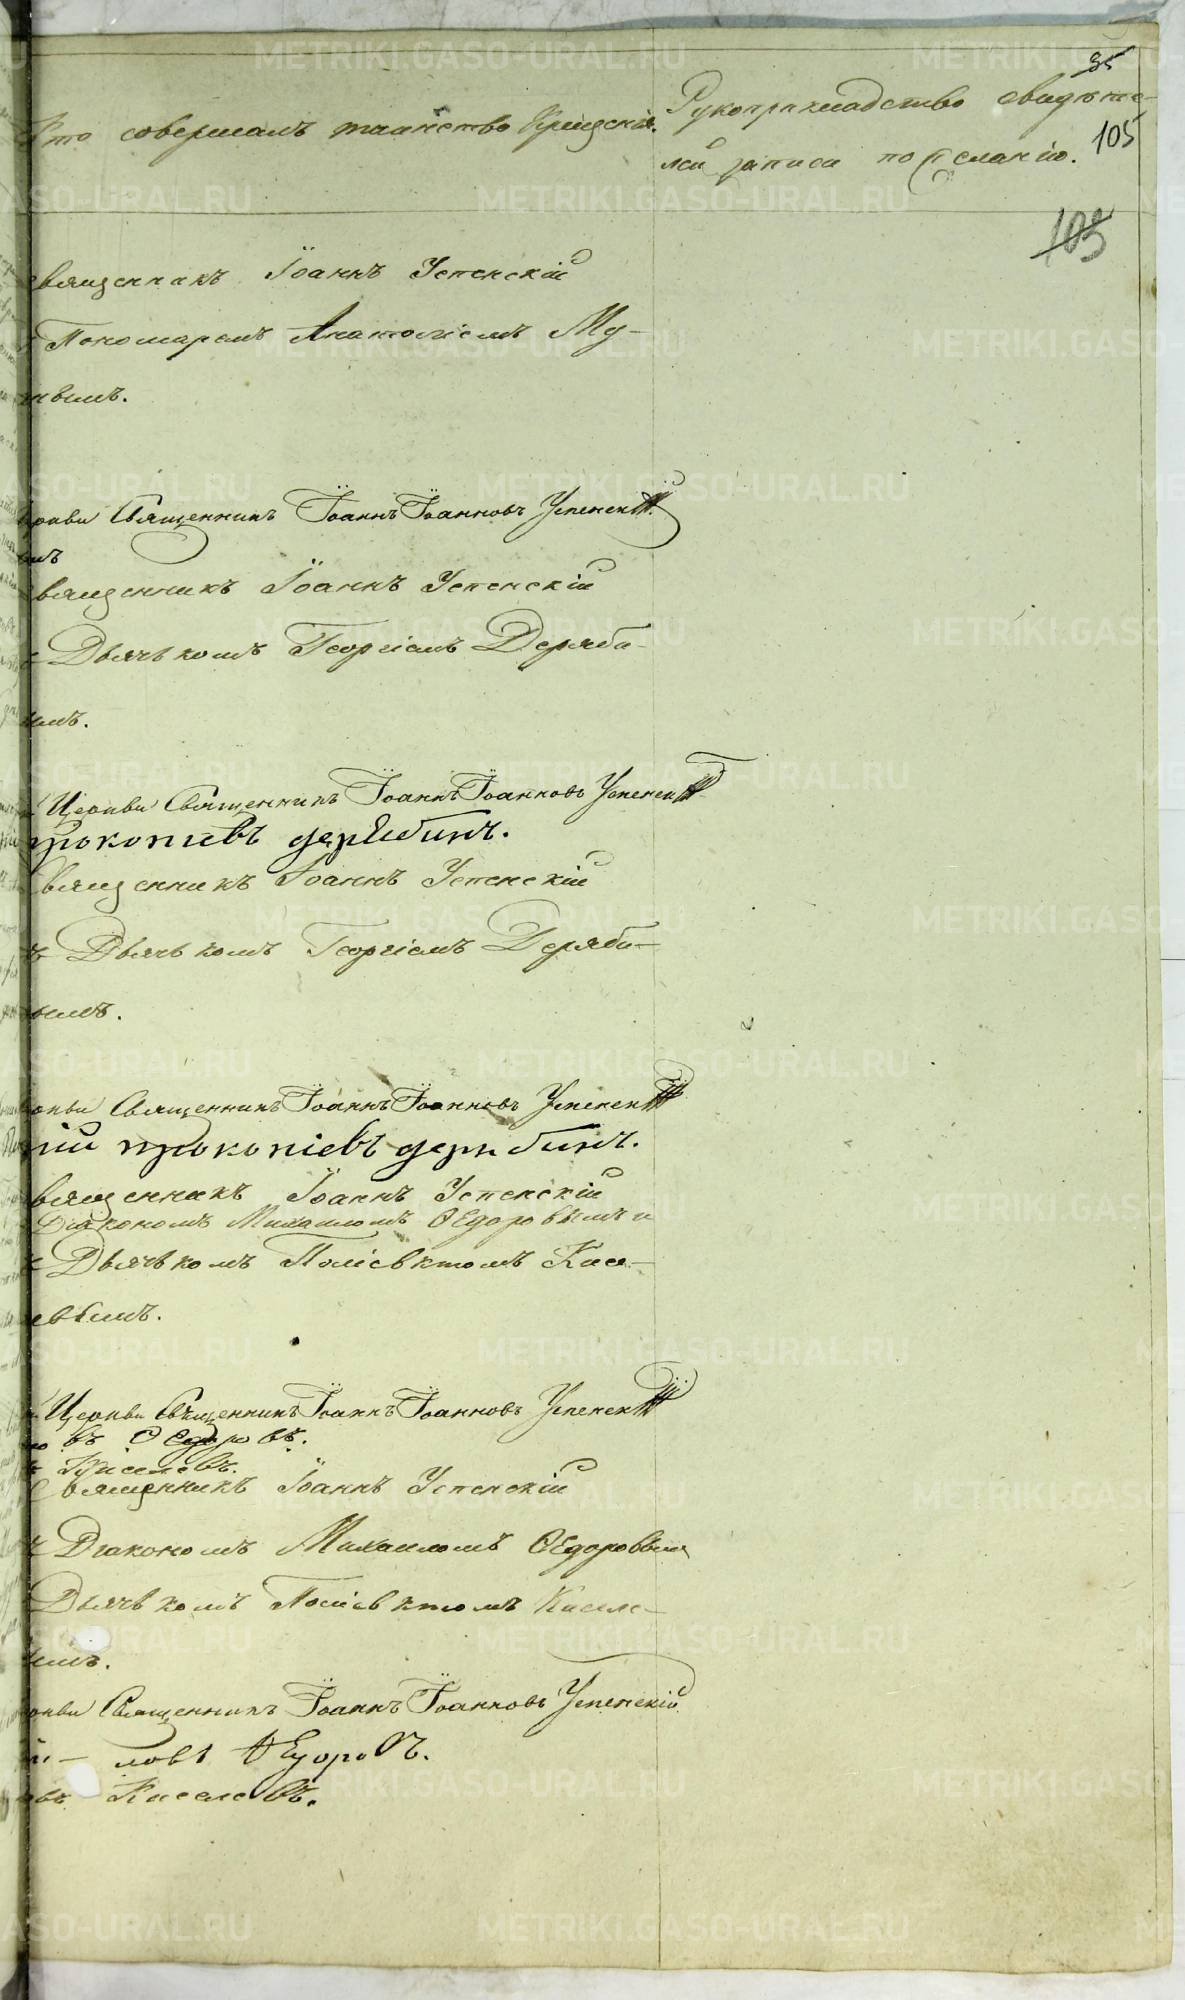 35
Кто совершалъ таинство Крещенія.
Рукоприкладство свидѣте-
лей записи по желанію.
105
103
Священникъ Іоаннъ Успенскій
Пономаремъ Анатоліемъ Му-
вымъ.
Церкви Священникъ Іоаннъ Іоанновъ Успенскій
Священникъ Іоаннъ Успенскій
съ Дьячькомъ Георгіемъ Деряби-
нымъ.
Церкви Священникъ Іоаннъ Іоанновъ Успенскій
прокопиевъ дерябинъ.
Священникъ Іоаннъ Успенскій
съ Дьячькомъ Георгіемъ Деряби-
нымъ.
Церкви Священникъ Іоаннъ Іоанновъ Успенскій
гій прокопіевъ дерябинъ.
Священникъ Іоаннъ Успенскій
Діакономъ Михаиломъ Ѳедоровымъ и
съ Дьячькомъ Поліевктомъ Кисе-
левымъ.
Церкви Священникъ Іоаннъ Іоанновъ Успенскій
въ Ѳедоровъ.
Киселевъ.
Священникъ Іоаннъ Успенскій
съ Діакономъ Михаиломъ Ѳедоровым
Дьячькомъ Поліевктомъ Киселе-
вымъ.
Церкви Священникъ Іоаннъ Іоанновъ Успенскій
ловъ Ѳедоровъ.
Киселевъ.
METRIKI.GASO-URAL.RU